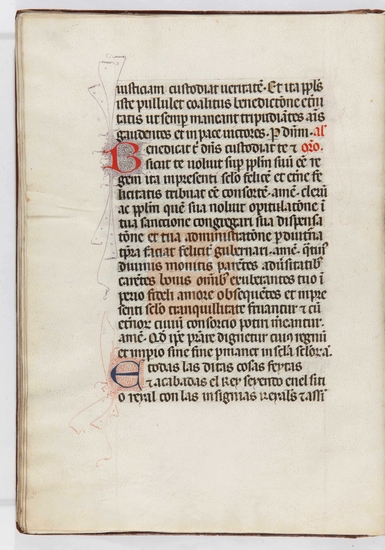 iusticiam custodiat ueritatē · Et ita pp̄ls
iste pullulet coalitus benedictōne et̄ni
tatis ut semp̄ maneant tripudiātes aīs
gaudentes et in pace uictores · P dn̄m · al
Benedicat t̄ dn̄s custodiat te ⁊ or̄o ·
sicut te uoluit sup pp̄lm suū eē re
gem ita in presenti sclo felicē et et̄ne fe
licitatis tribuat eē consortē · amē · clerū
ac pp̄lm quē sua uoluit opitulatōne ī
tua sanctione congregari sua dispensa
tōne et tua administratōne p diutīna
tp̄ra faciat feliciť gubernari · amē · qt̄in9
diuinis monitis parētes adūsitatibȝ
carētes bonis oīnibȝ exuberantes tuo ī
perio fideli amore obsequētes et in pre
senti sclo tranquillitate fruantur ⁊ tū
et̄norȝ ciuiū consorcio potiri mereantur ·
amē · Qd̄ ip̄e prestare dignetur cuius regnū
et imp̄io sine fine p̄manet in scl̄a scl̄orȝ a ·
E todas las ditas cosas feytas
⁊ acabadas el Rey seyento en el siti
o reyal con las insignias reyals ⁊ assi